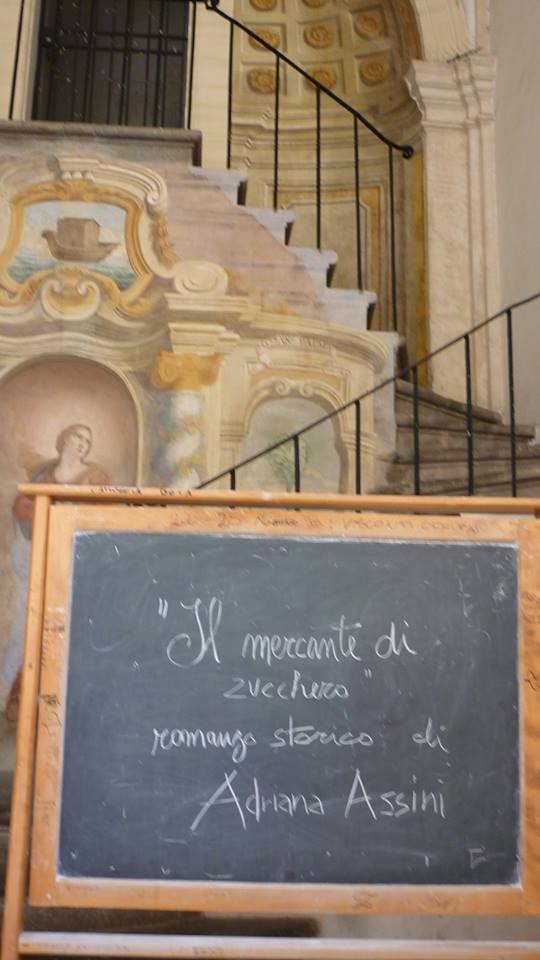 "Il mercante di
zucchero"
romanzo storico di
Adriana Assini